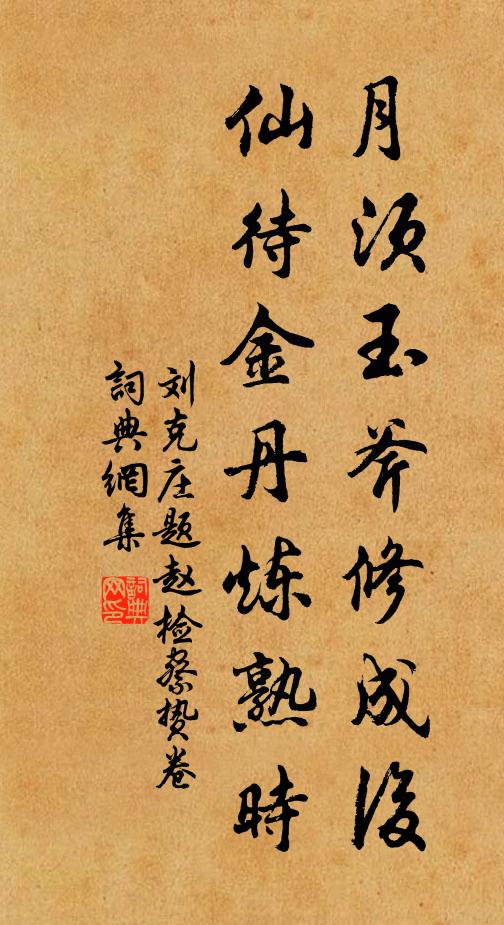 月須玉斧修成後
仙待金丹炼熟時
刘克庄题赵检察贽卷
詞典網集
詞典网印